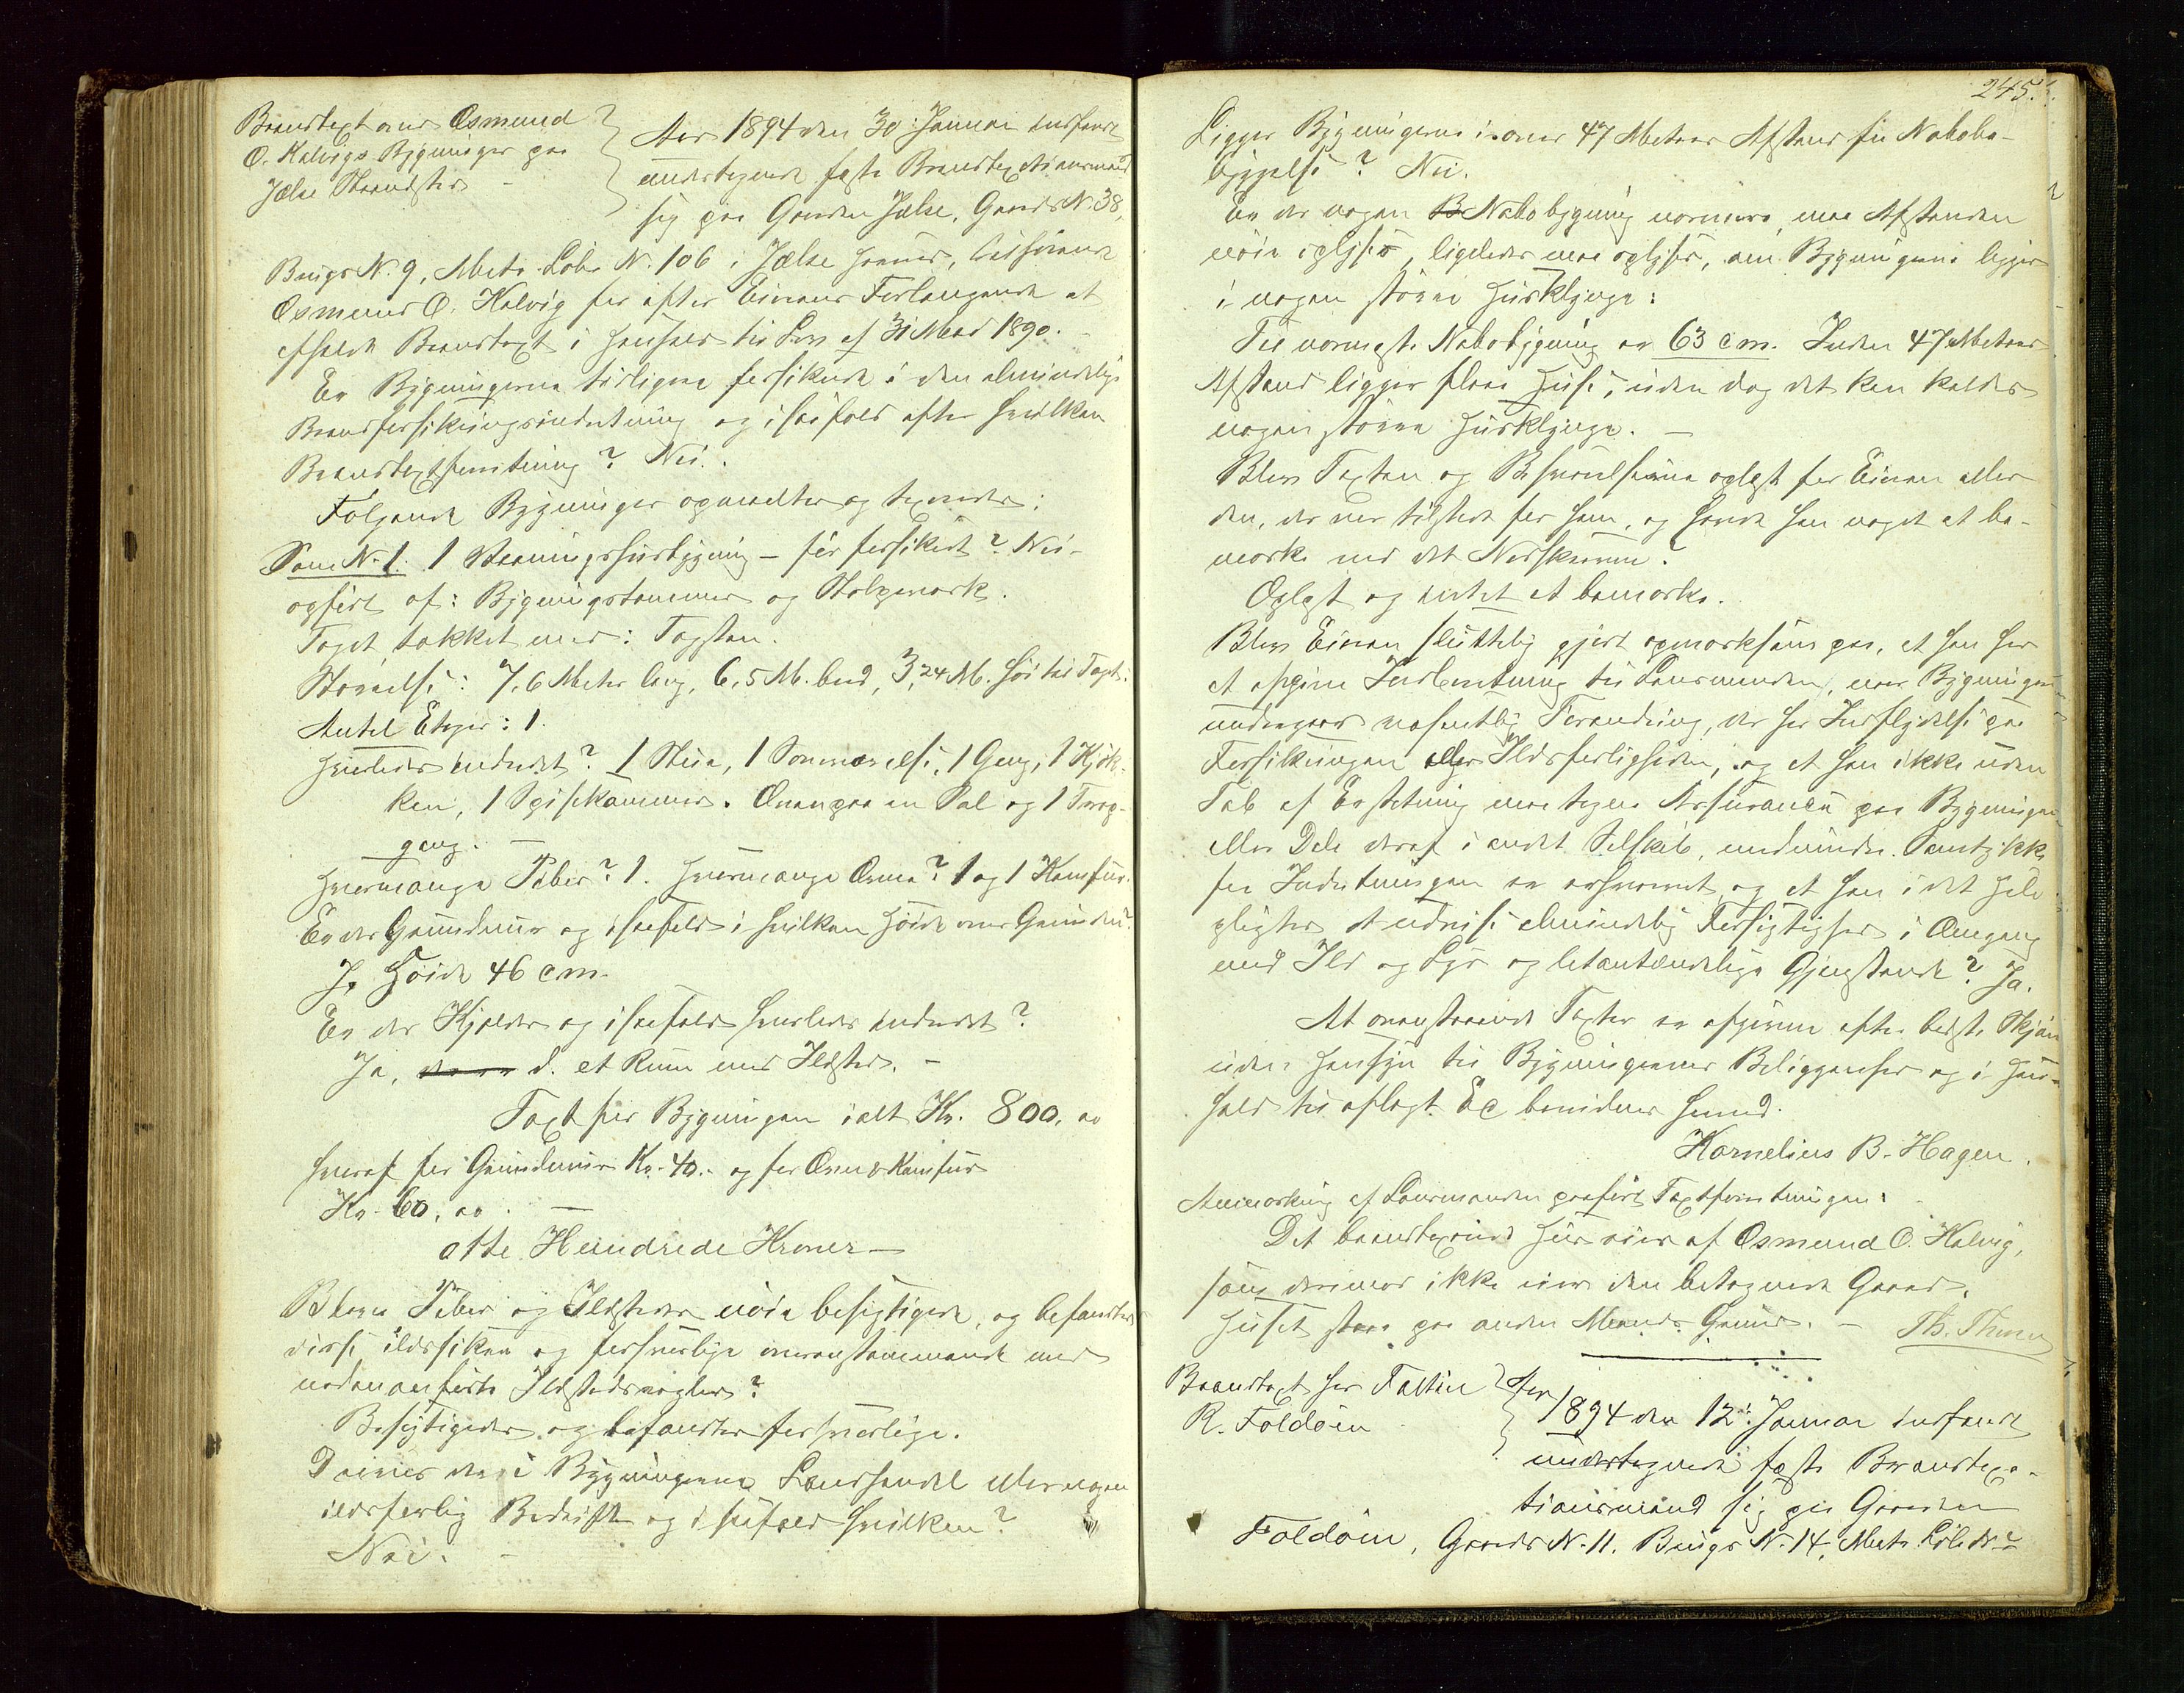 Brandtaxt over Osmund
O. Kalvigs Bygninger paa
Jælse Strandsted -
Aar 1894 den 30. Januar indfandt
undertegnede faste Brandtaxationsmænd
sig paa Gaarden Jælse, Gaards N. 38,
Brugs N. 9, Matr. Löbe N. 106 i Jælse Herred, tilhörende
Osmund O. Kalvig for efter Eierens Forlangende at
afholde Brandtaxt i Henhold til Lov af 31 Mai 1890.
Er Bygningerne tidligere forsikrede i den almindelige
Brandforsikringsindretning og isaafald efter hvilken
Brandtaxtforretning? Nei.
Fölgende Bygninger opmaaltes og taxeredes:
Som N. 1. 1 Vaaningshusbygning - för forsikret? Nei-
opfört af: Bygningstömmer og Stolpeverk.
Taget tækket med: Tagsten.
Störrelse: 7,6 Meter lang, 6,5 M. bred, 3,24 M. höi til Taget.
Antal Etager: 1.
Hvorledes indredet? 1 Stue, 1 Sommer, 1 Gang, 1 Kjök-
ken, 1 Spisekammer. Ovenpaa en Sal og 1 Trap-
gang. -
Hvormange Piber? 1. Hvormange Ovne? 1 og 1 Komfur.
Er der Grundmur og isaafald i hvilken Höide over Grunden?
Ja Höide 46 cm.
Er der Kjælder og isaafald hvorledes indredet?
Ja, d. et Rum med Ildsted. -
Taxt for Bygningen ialt Kr. 800, 00
hvoraf for Grundmur Kr. 40.- og for Ovn & Komfur
Kr. 60, 00. -
otte Hundrede Kroner -
Bleve Piber og Ildsteder nöie besigtigede, og befandtes
disse ildsikre og forsvarlige overensstemmende med
nedenanförte Ildstedsregler?
Besigtigedes og befandtes forsvarlige.
Drives der i Bygningerne Landhandel eller nogen
ildsfarlig Bedrift og isaafald hvilken?
Nei. -
245.
Ligger Bygningerne i over 47 Meters Afstand fra Nabobe-
byggelse? Nei.
Er der nogen Nabobygning nærmere, maa Afstanden
nöie oplyses, ligeledes maa oplyses, om Bygningerne ligger
i nogen större Husklynge:
Til nærmeste Nabobygning er 63 cm. Inden 47 Meters
Afstand ligger flere Huse, uden dog det kan kaldes
nogen större Husklynge. -
Blev Taxten og Beskrivelserne oplæst for Eieren eller
den, der var tilstede for ham, og havde han noget at be-
mærke ved det Nedskrevne?
Oplæst og intet at bemærke.
Blev Eieren sluttelig gjort opmærksom paa, at han har
at afgive Indberetning til Lensmanden, naar Bygningen
undergaar væsentlig Forandring, der har Indflydelse paa
Forsikringen eller Ildsfarligheden, og at han ikke uden
Tab af Erstatning maa tegne Assurance paa Bygningen
eller Dele deraf i andet Selskab, medmindre Samtykke
fra Indretningen er erhvervet, og at han i det Hele
pligter at udvise almindelig Forsigtighed i Omgang
med Ild og Lys og letantændelige Gjenstande? Ja.
At ovenstaaende Taxter er afgivne efter bedste Skjön
uden Hensyn til Bygningernes Beliggenhed og i Hen-
hold til aflagt Ed bevidnes herved.
Kornelius B. Hagen.
Anmerkning af Lensmanden paafört Taxtforretningen:
Det brandtaxerede Hus eies af Osmund O. Kalvig,
som derimod ikke eier den betegnede Gaard.
Huset staar paa anden Mands Grund. - Th. Thune
Brandtaxt hos Faltin
R. Foldöen
Aar 1894 den 12. Januar indfandt
undertegnede faste Brandtaxa-
tionsmænd sig paa Gaarden
Foldöen, Gaards N. 11. Brugs N. 14, Matr. Löbe N.